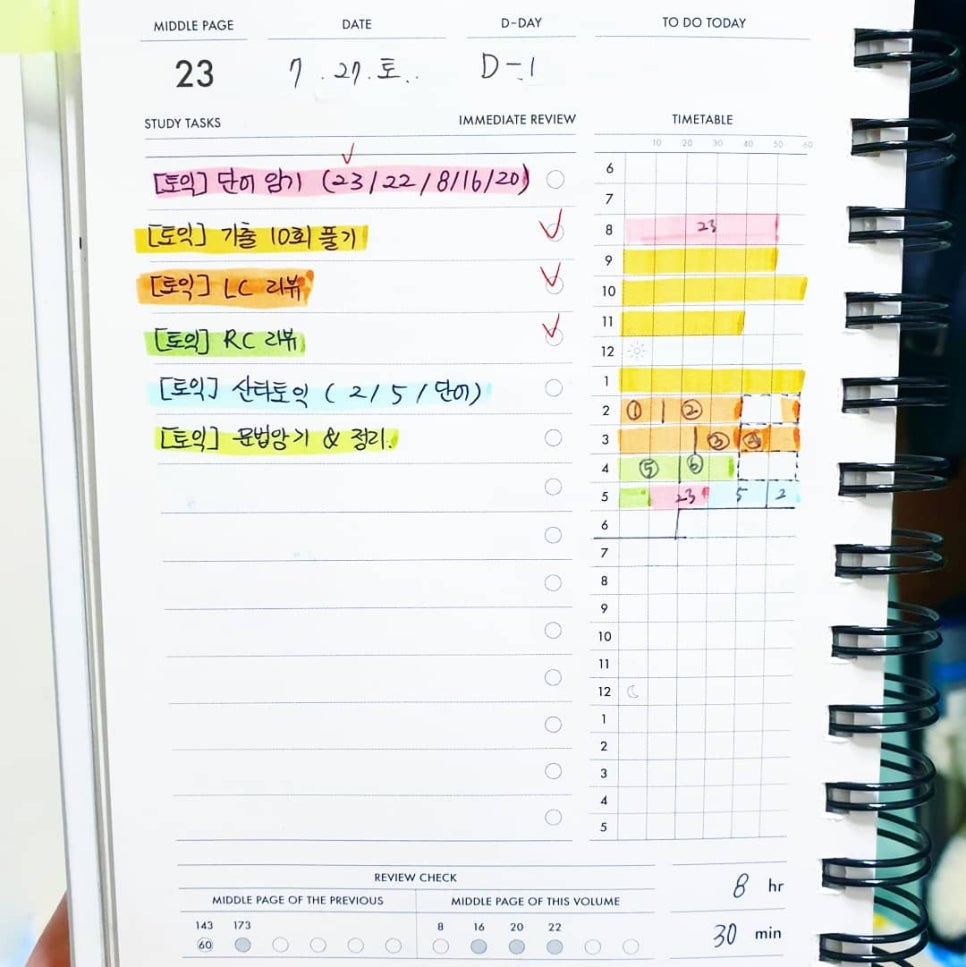 MIDDLE PAGE DATE D-DAY TO DO TODAY
23 7.27.토.. D-1
STUDY TASKS IMMEDIATE REVIEW TIMETABLE
10 20 30 40 50 60
[토익] 단어 암기 (23/22/8/16/20)
[토익] 기출 10회 풀기
[토익] LC 리뷰
[토익] RC 리뷰
[토익] 산타토익 ( 2 / 5 / 단어)
[토익] 문법암기 & 정리.
6
7
8 23
9
10
11
12
1
2 ① ②
3 ③ ④
4 ⑤ ⑥
5 23 5 2
6
7
8
9
10
11
12
1
2
3
4
5
REVIEW CHECK
MIDDLE PAGE OF THE PREVIOUS MIDDLE PAGE OF THIS VOLUME
143 173 8 16 20 22
60
8 hr
30 min